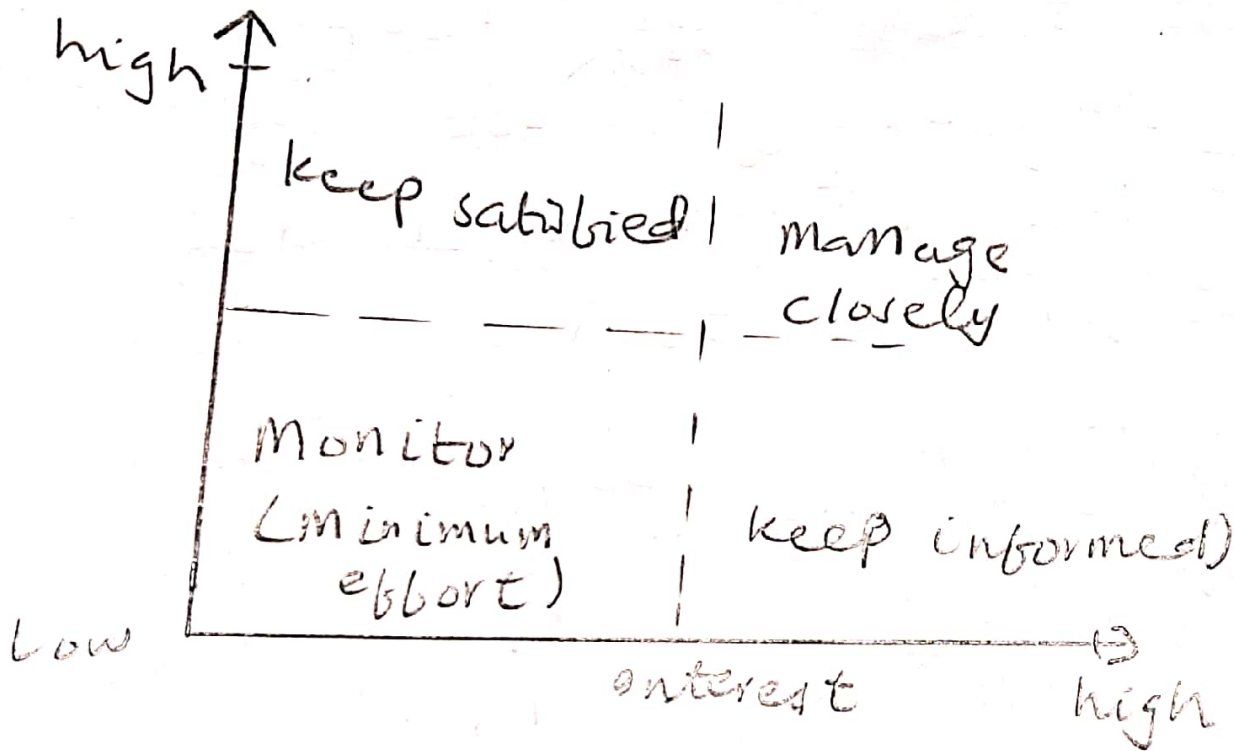 high
keep satisfied
manage
closely
Monitor
(minimum
effort)
keep informed)
Low
interest
high